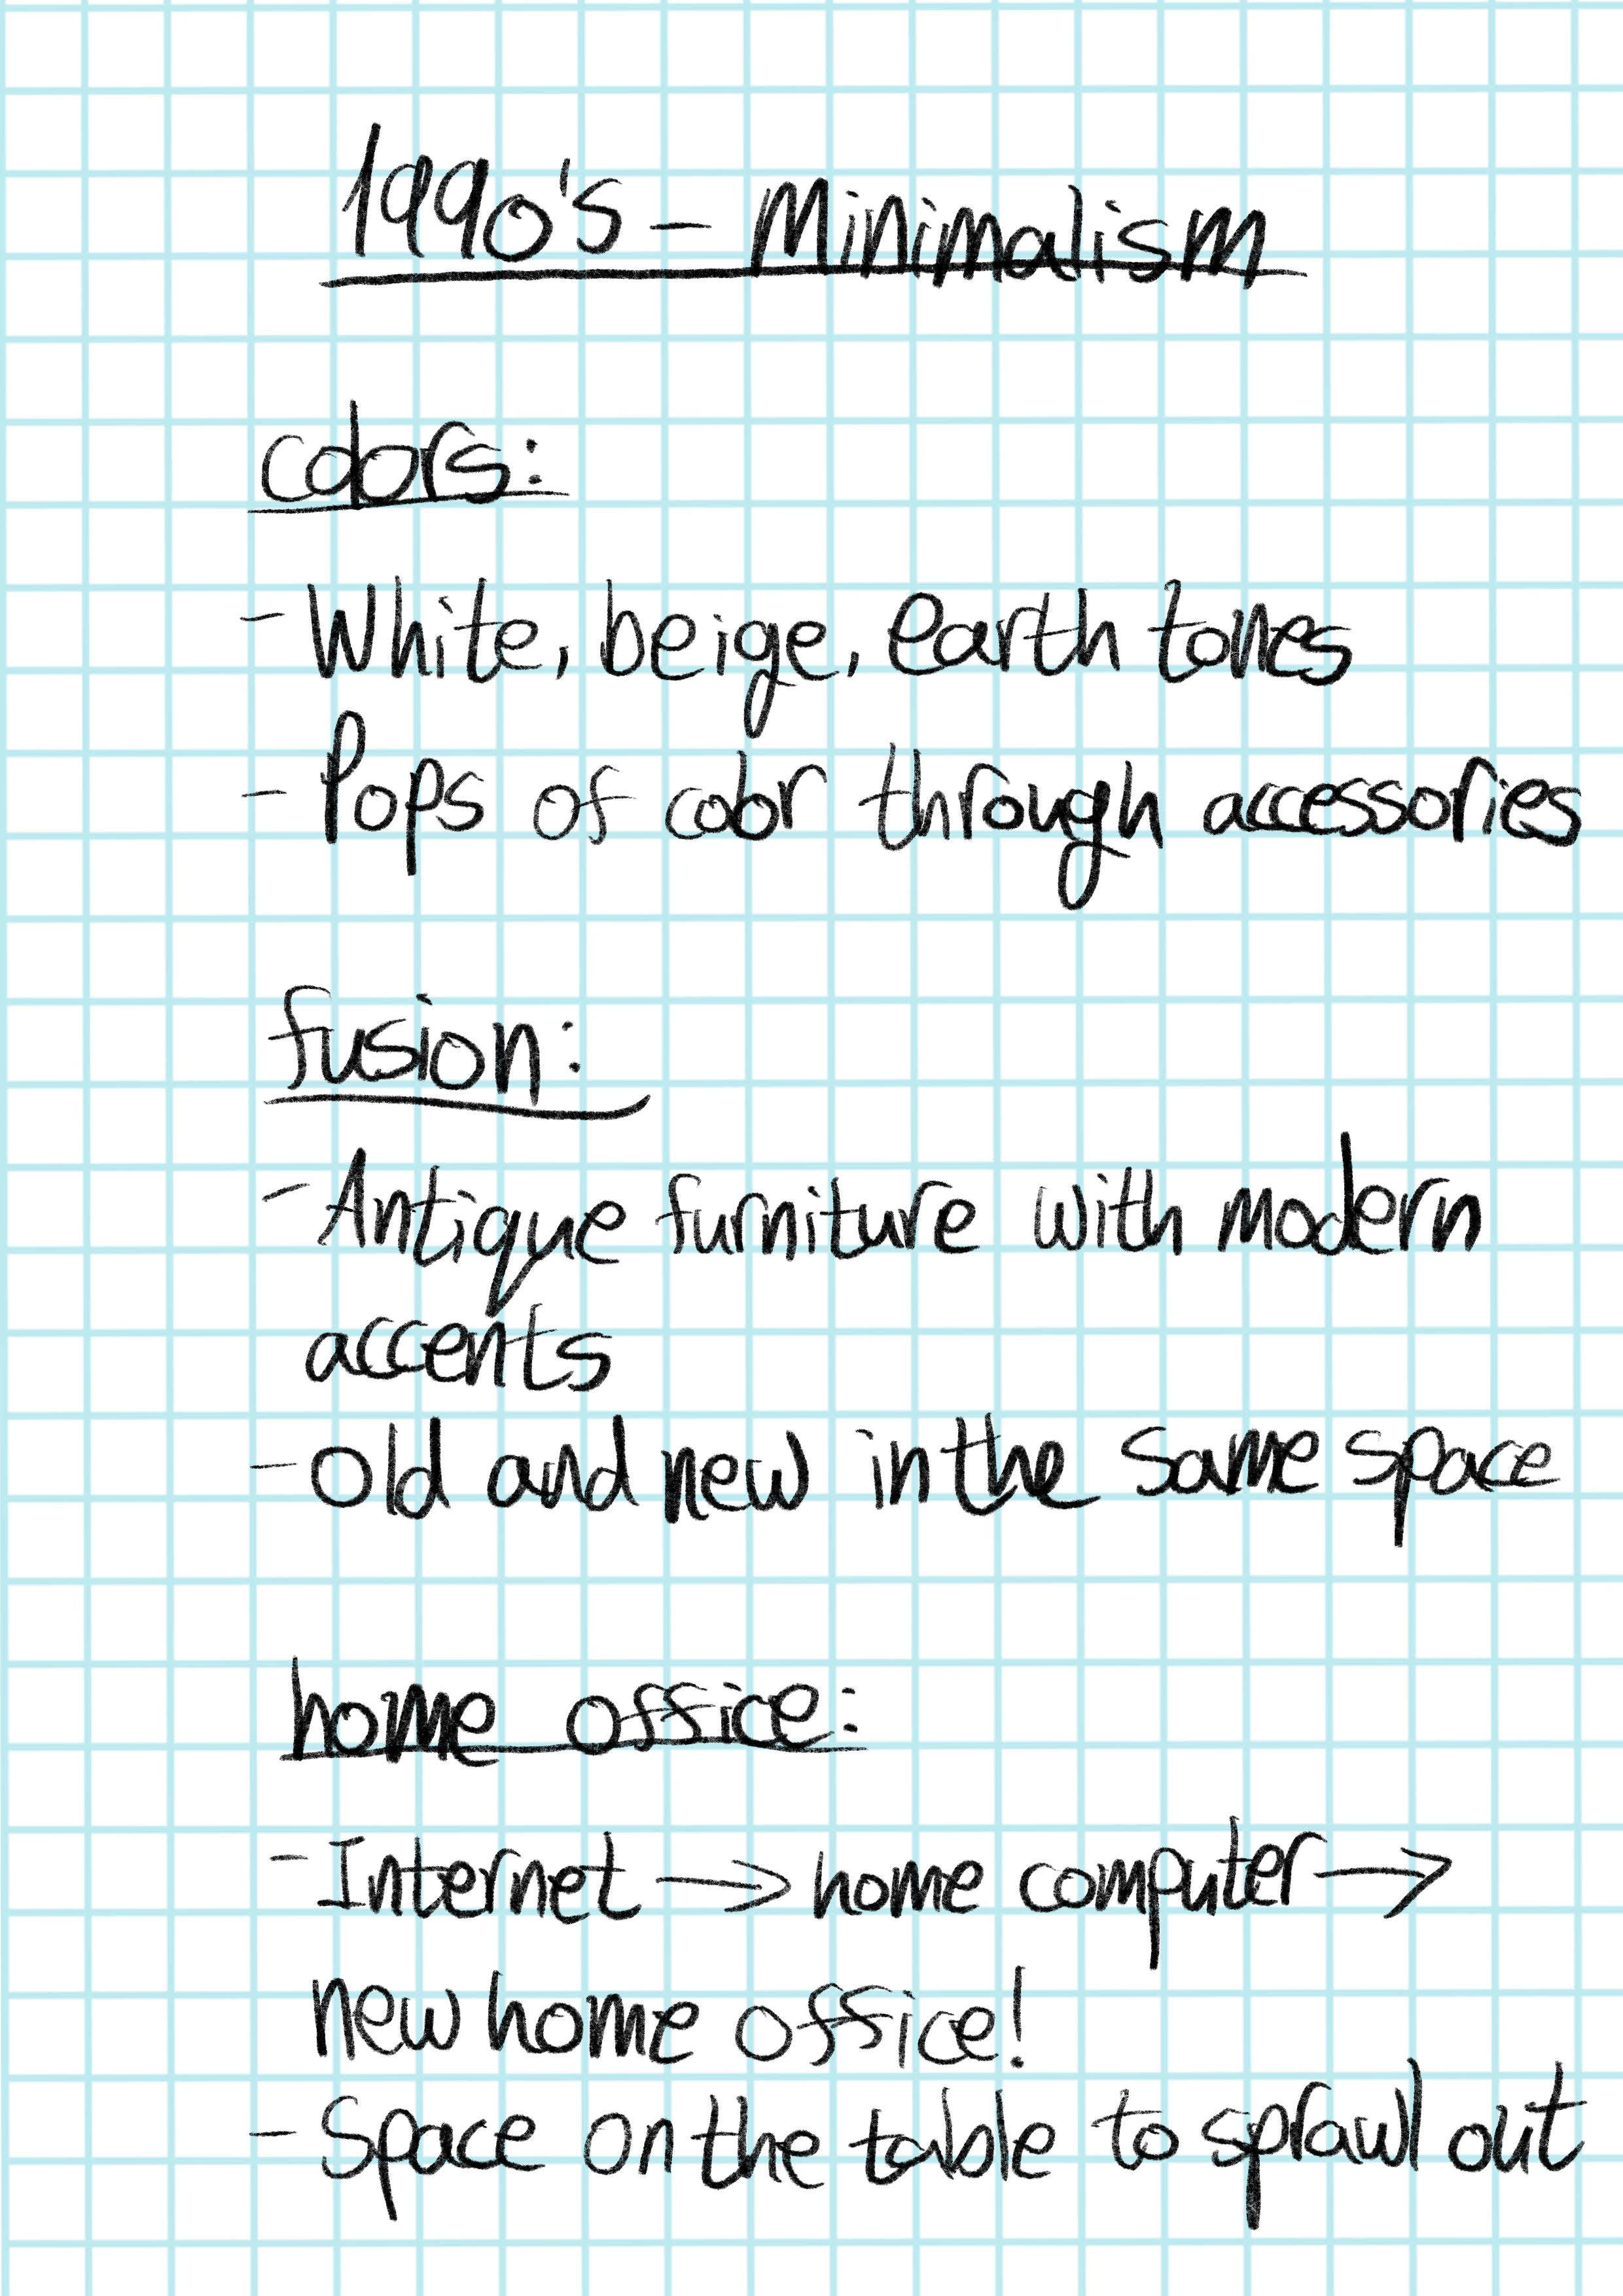 1990's - Minimalism
colors:
- White, beige, earth tones
- Pops of color through accessories
fusion:
- Antique furniture with modern
accents
- Old and new in the same space
home office:
- Internet → home computer →
new home office!
- Space on the table to sprawl out